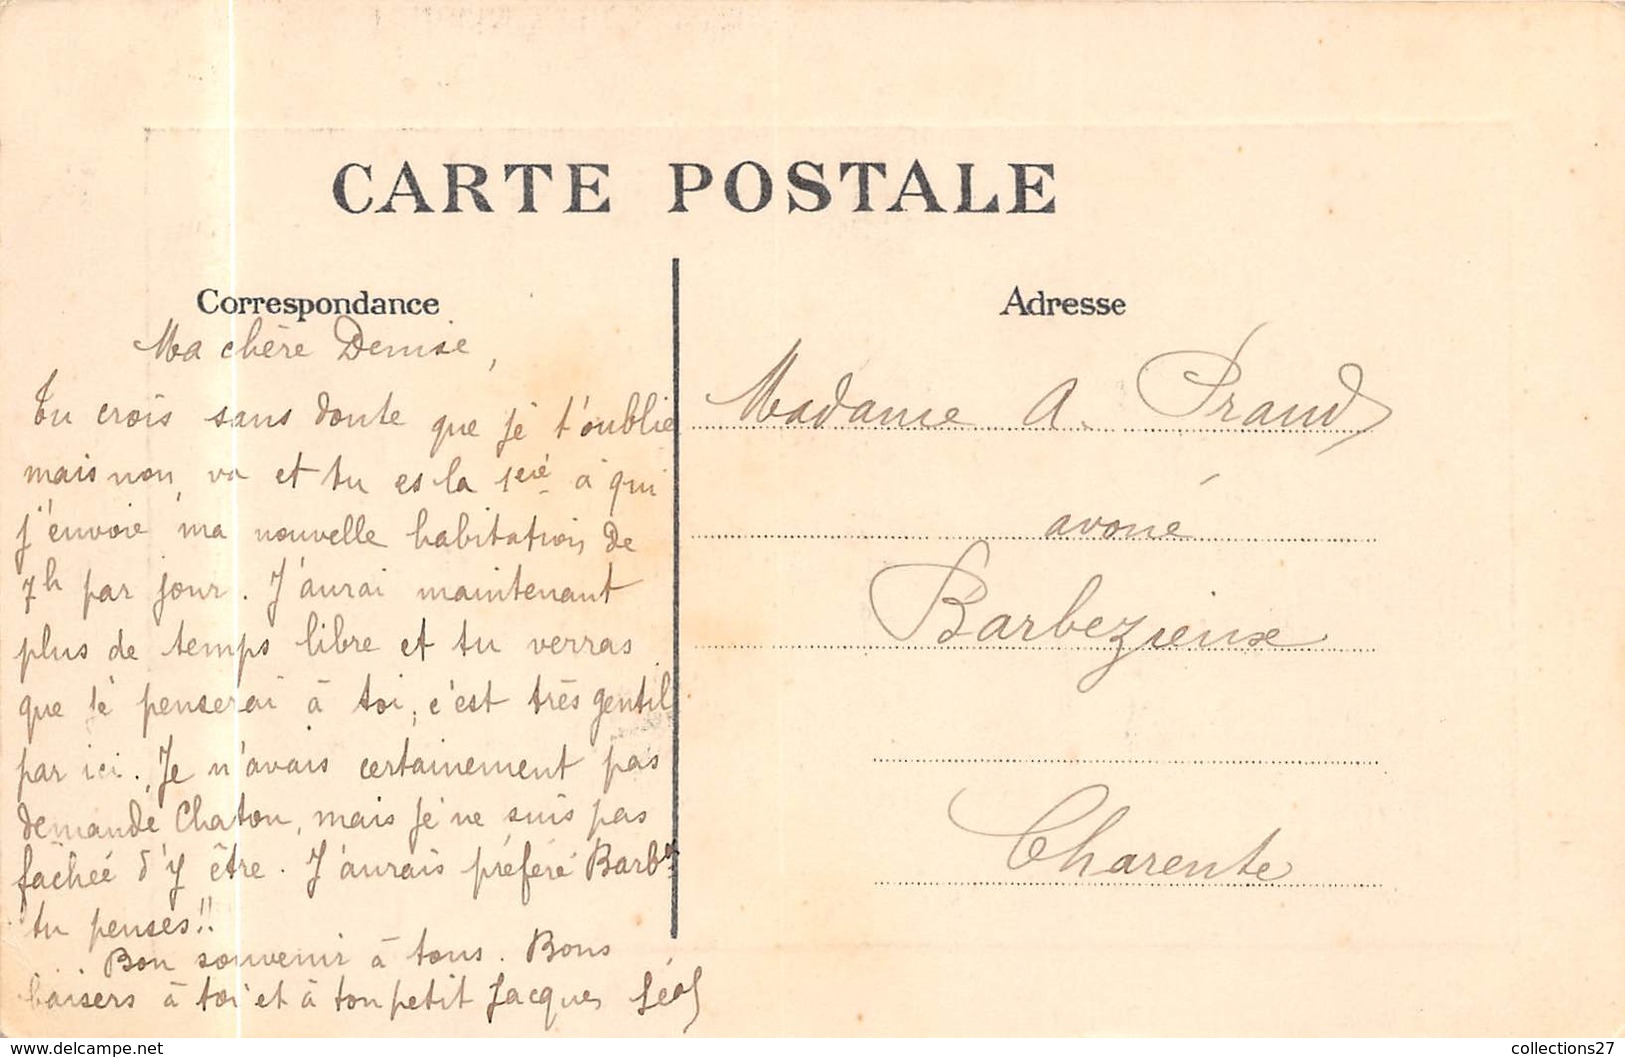 CARTE POSTALE
Correspondance
Ma chère Denise,
Tu crois sans doute que je t'oublie
mais non, va et tu es la 1ère à qui
j'envoie ma nouvelle habitation de
7h par jour. J'aurai maintenant
plus de temps libre et tu verras
que je penserai à toi, c'est très gentil
par ici. Je n'avais certainement pas
demandé Chaton, mais je ne suis pas
fâchée d'y être. J'aurais préféré Barbx
tu penses!!
Bon souvenir à tous. Bons
baisers à toi et à ton petit Jacques
Adresse
Madame A. Praud
avoué
Barbezieux
Charente
delcampe.net
collections27